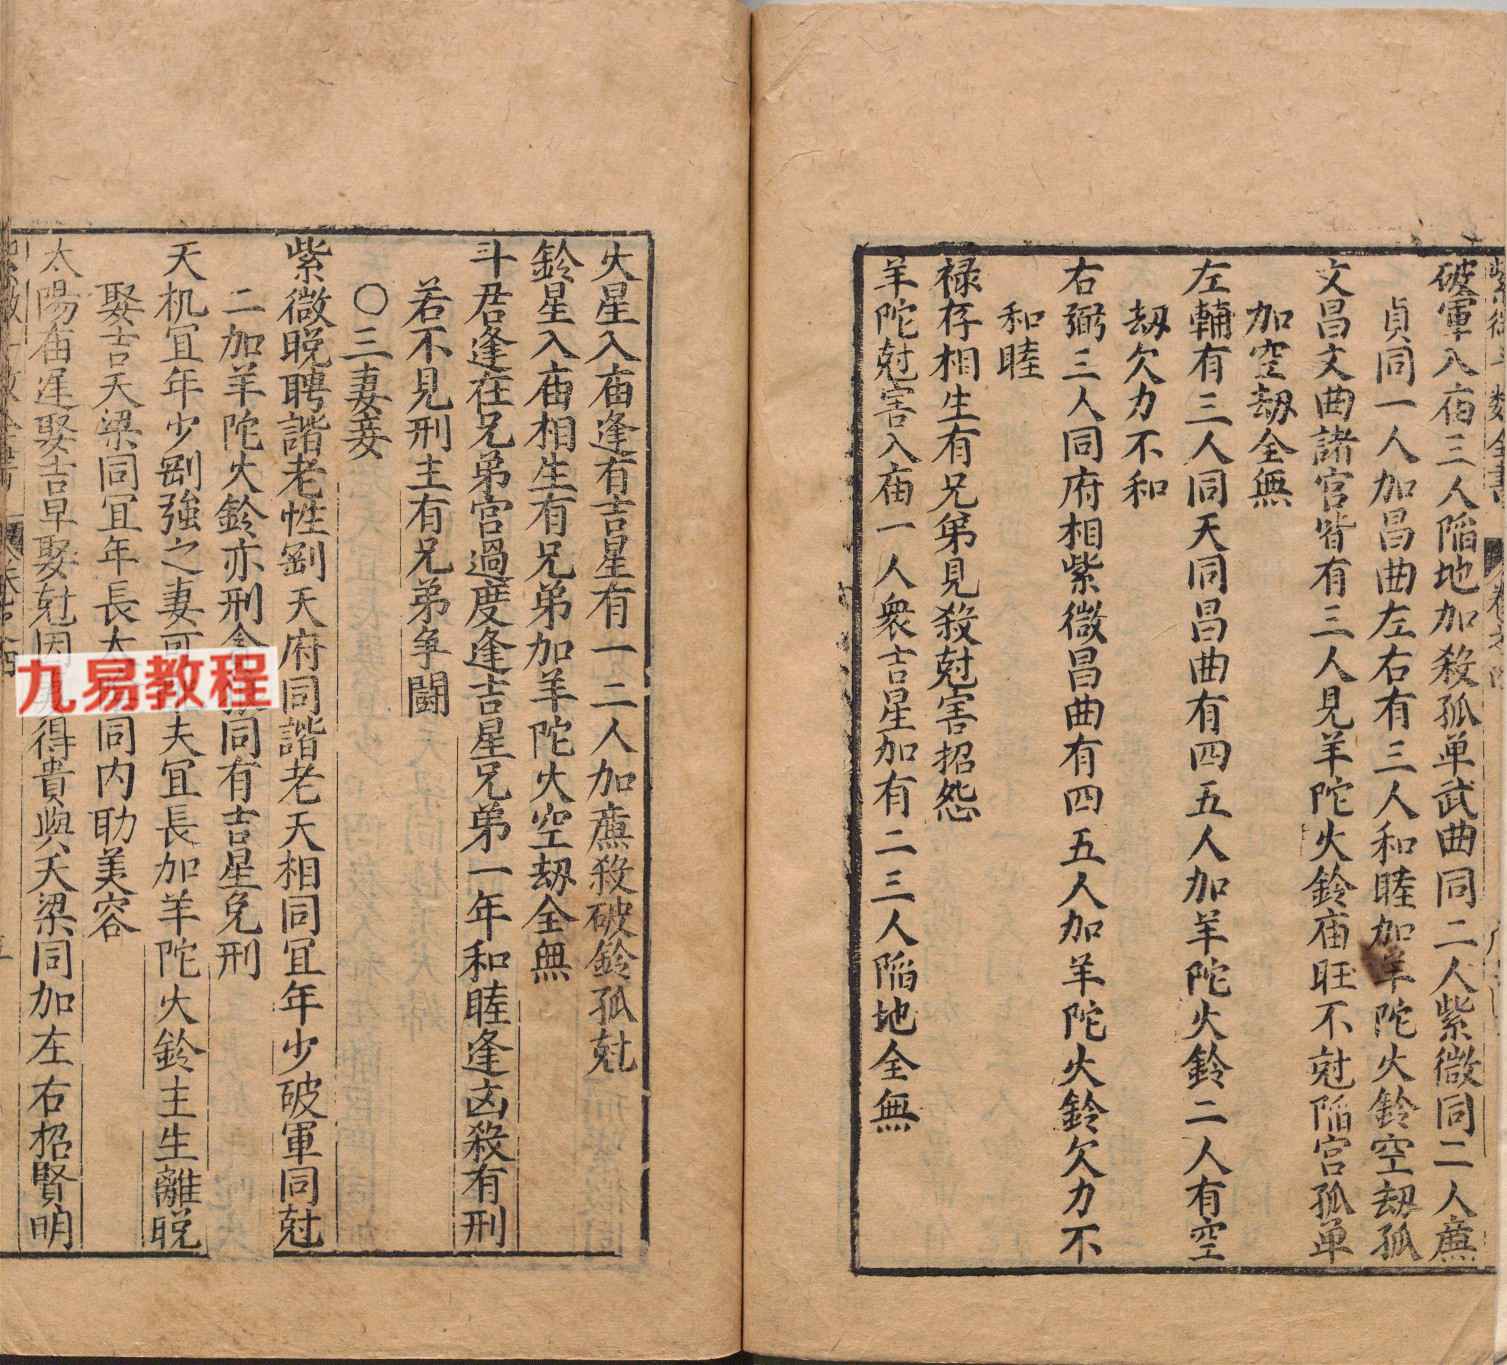 破軍入庙三人陷地加殺孤单武曲同二人紫微同二人亷
貞同一人加昌曲左右有三人和睦加羊陀火鈴空刼孤
文昌文曲諸宫皆有三人見羊陀火鈴庙旺不尅陷宫孤单
加空刼全無
左輔有三人同天同昌曲有四五人加羊陀火鈴二人有空
刼欠力不和
右弼三人同府相紫微昌曲有四五人加羊陀火鈴欠力不
和睦
禄存相生有兄弟見殺尅害招怨
羊陀尅害入庙一人衆吉星加有二三人陷地全無
火星入庙逢有吉星有一二人加亷殺破鈴孤尅
鈴星入庙相生有兄弟加羊陀火空刼全無
斗君逢在兄弟宫過度逢吉星兄弟一年和睦逢凶殺有刑
若不見刑主有兄弟争鬪
○三妻妾
紫微晚聘諧老性剛天府同諧老天相同冝年少破軍同尅
二加羊陀火鈴亦刑同有吉星免刑
天机冝年少剛強之妻可夫冝長加羊陀火鈴主生離晚
娶吉天梁同冝年長太同内助美容
太陽庙遲娶吉早娶尅因得貴與天梁同加左右招賢明
九易教程